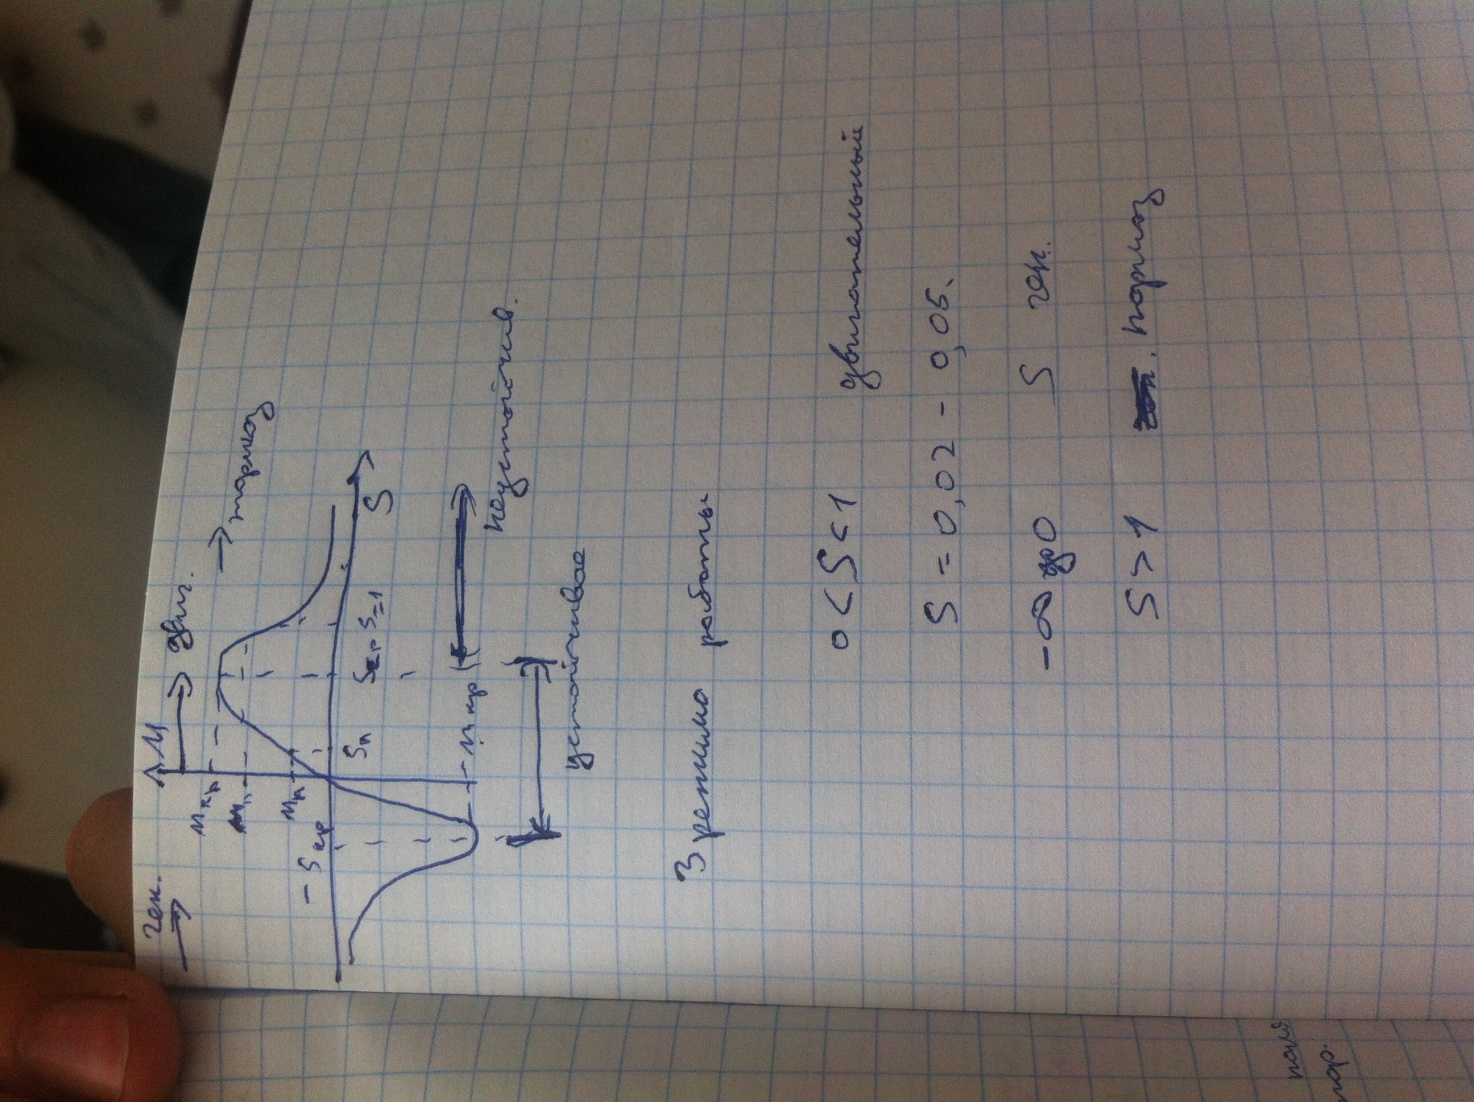 ген.
M
двиг.
тормоз
Mкр
Mп
Mн
- Sкр
Sн
Sкр
S=1
S
- Mкр
неустойчив.
устойчивое
3 режима работы
0 < S < 1 двигательный
S = 0,02 - 0,06.
-∞ до 0 S ген.
S > 1 тормоз
поля